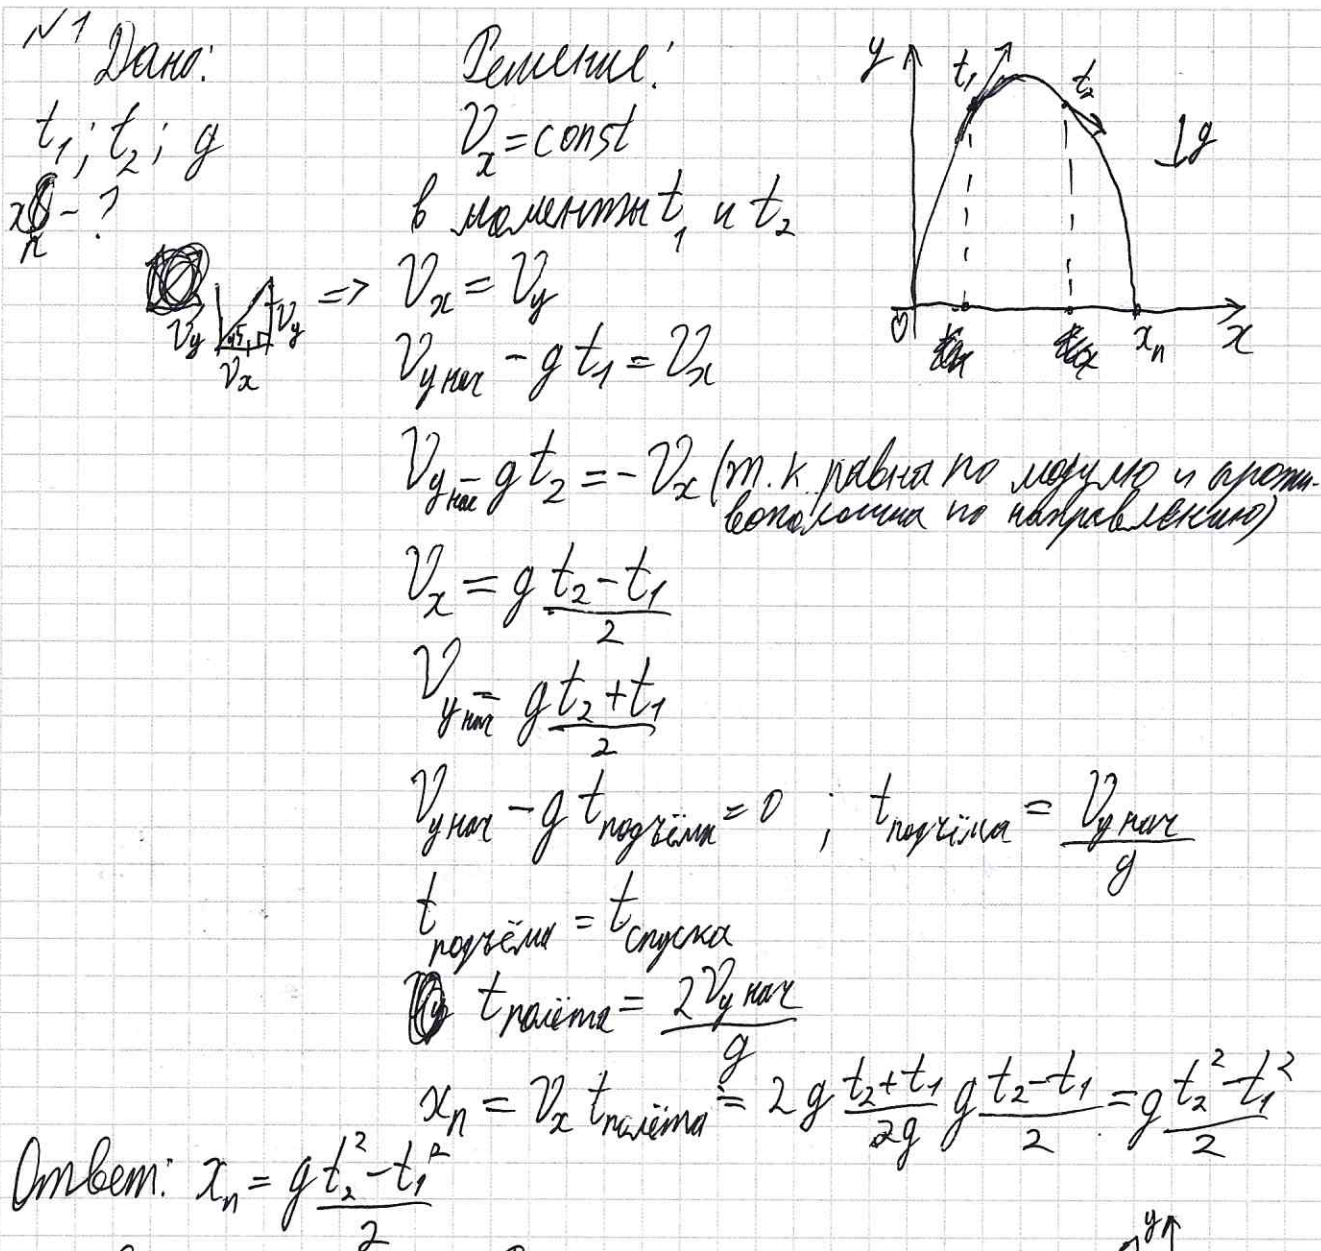 №1
Дано:
t₁; t₂; g
xₙ - ?
Решение:
Vₓ = const
в моменты t₁ и t₂
=> Vₓ = V_y
V_y нач - g t₁ = Vₓ
V_y нач - g t₂ = -Vₓ (т.к. равна по модулю и проти-
воположна по направлению)
Vₓ = g (t₂ - t₁)/2
V_y нач = g (t₂ + t₁)/2
V_y нач - g t подъёма = 0 ; t подъёма = V_y нач / g
t подъёма = t спуска
t полёта = 2V_y нач / g
xₙ = Vₓ t полёта = 2g (t₂ + t₁)/2g g (t₂ - t₁)/2 = g (t₂² - t₁²)/2
Ответ: xₙ = g (t₂² - t₁²)/2
V_y 45 V_y
Vₓ
y t₁ t₂
↓g
0 xₙ x
y